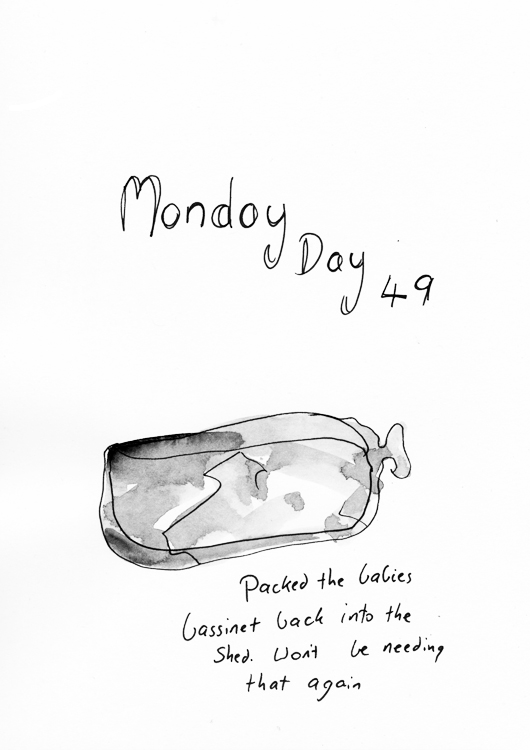 Monday
Day 49
Packed the babies
bassinet back into the
Shed. Won't be needing
that again